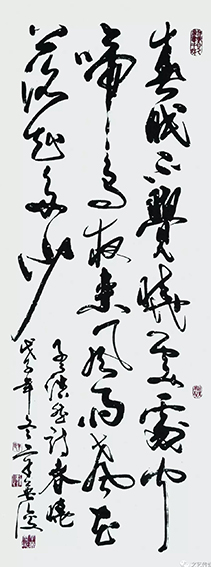 春眠不觉晓处处闻
啼鸟夜来风雨声花
落知多少
孟浩然诗春晓
戊子年冬